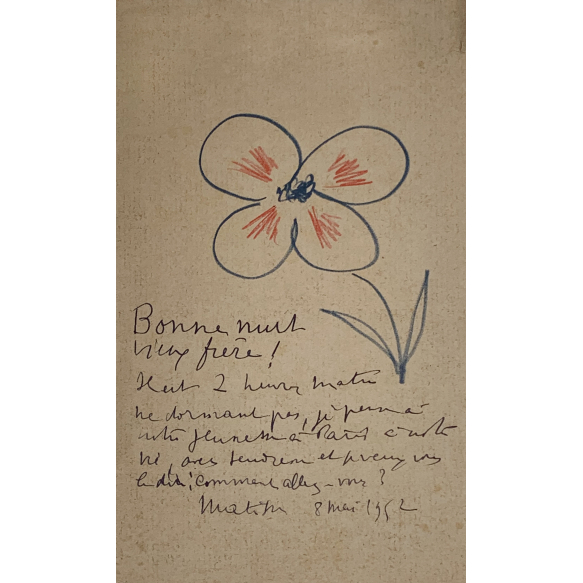 Bonne nuit
vieux frère !
Il est 2 heures matin
ne dormant pas, je pense à
notre jeunesse à Paris à notre
vie, avec tendresse et
comment allez-vous ?
Matisse 8 mai 1952